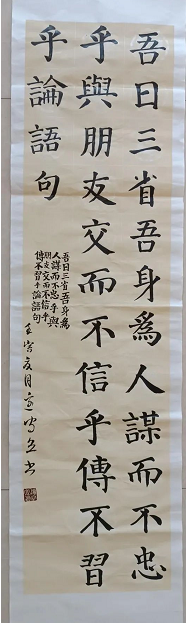 吾日三省吾身為人謀而不忠
乎與朋友交而不信乎傳不習
乎論語句
吾日三省吾身為
人謀而不忠乎與
朋友交而不信乎
傳不習乎論語句